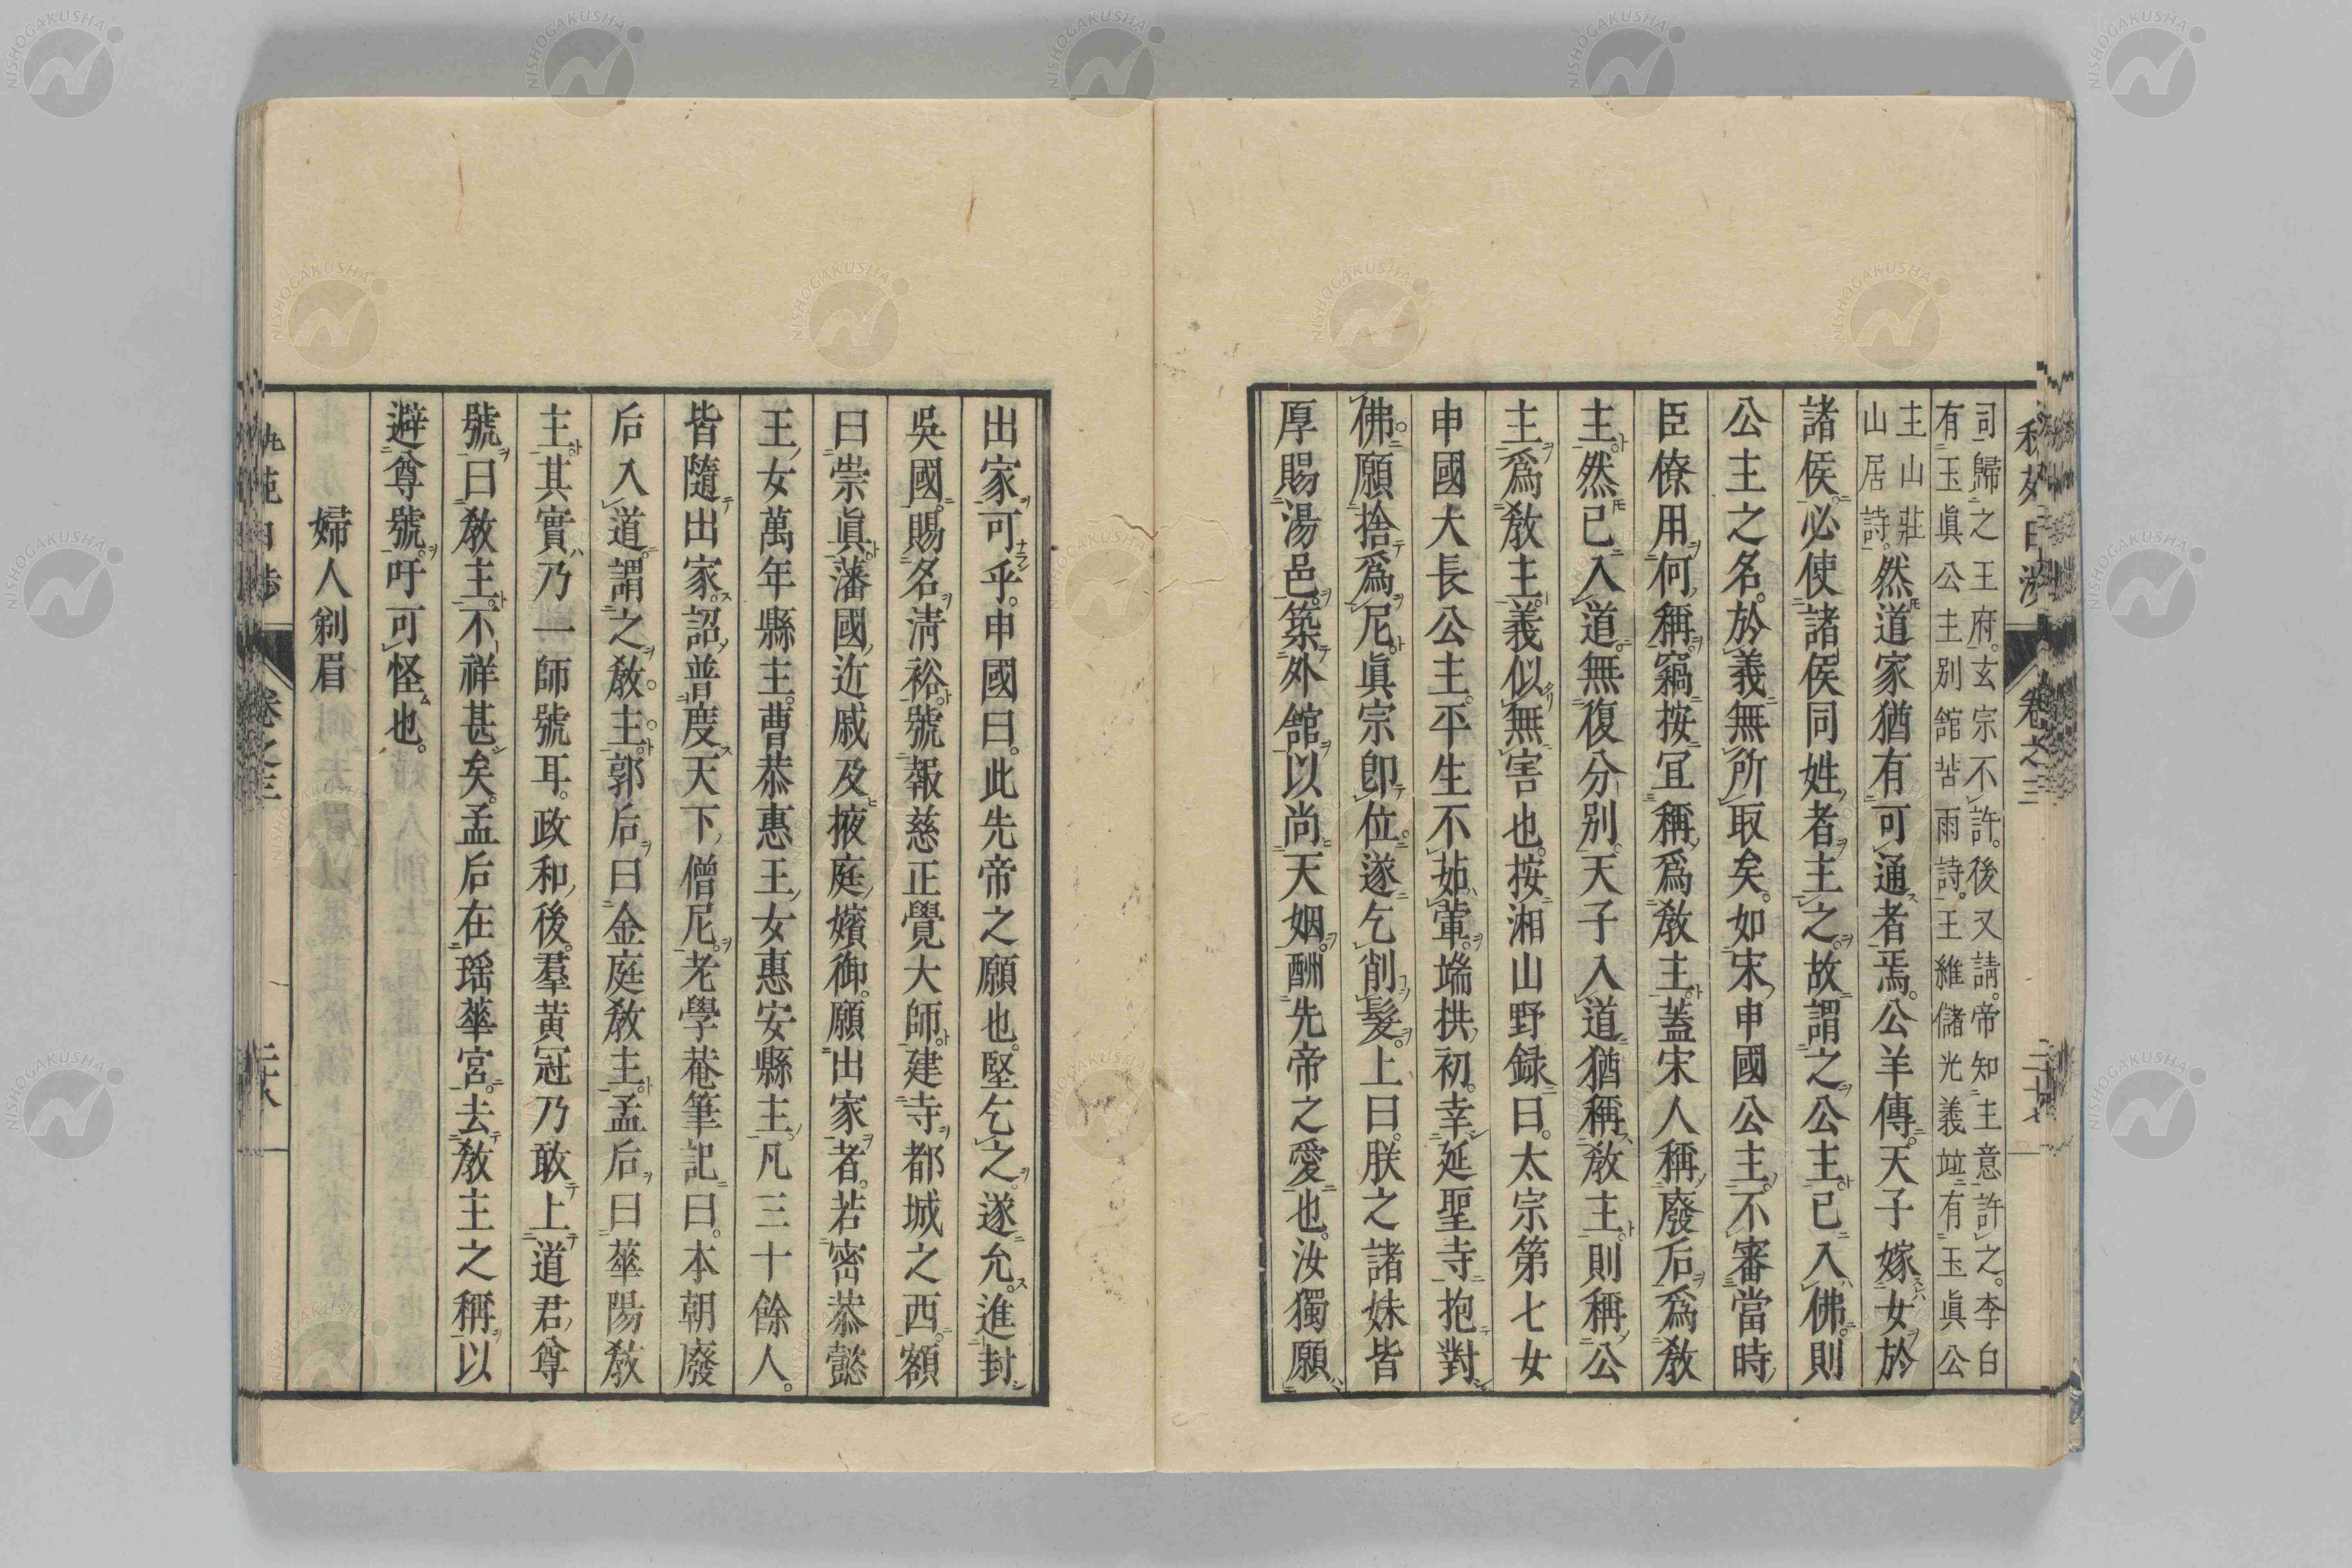 司歸之王府。玄宗不許。後又請。帝知主意許之。李白
有玉眞公主別館苦雨詩。王維儲光義竝有玉眞公
主山莊
山居詩。然道家猶有可通者焉。公羊傳。天子嫁女於
諸侯。必使諸侯同姓者。主之。故謂之公主。已入佛。則
公主之名。於義無所取矣。如宋申國公主。不審當時
臣僚用何稱。竊按宜稱爲教主。蓋宋人稱廢后爲教
主。然已入道。無復分別。天子入道。猶稱教主。則稱公
主爲教主。義似無害也。按湘山野録曰。太宗第七女
申國大長公主。平生不茹葷。端拱初。幸延聖寺。抱對
佛。願捨爲尼。眞宗卽位。遂乞削髮。上曰。朕之諸妹皆
厚賜湯邑。築外館。以尚天姻。酬先帝之愛也。汝獨願
出家。可乎。申國曰。此先帝之願也。堅乞之。遂允。進封
吳國。賜名淸裕。號報慈正覺大師。建寺都城之西。額
曰崇眞。藩國近戚及掖庭嬪御。願出家者。若密恭懿
王女萬年縣主。曹恭惠王女惠安縣主。凡三十餘人。
皆隨出家。詔普度天下僧尼。老學菴筆記曰。本朝廢
后入道。謂之教主。郭后曰金庭教主。孟后曰華陽教
主。其實乃一師號耳。政和後。羣黃冠乃敢上道君尊
號曰教主。不祥甚矣。孟后在瑶華宮。去教主之稱。以
避尊號。吁可怪也。
婦人剃眉
卷之三